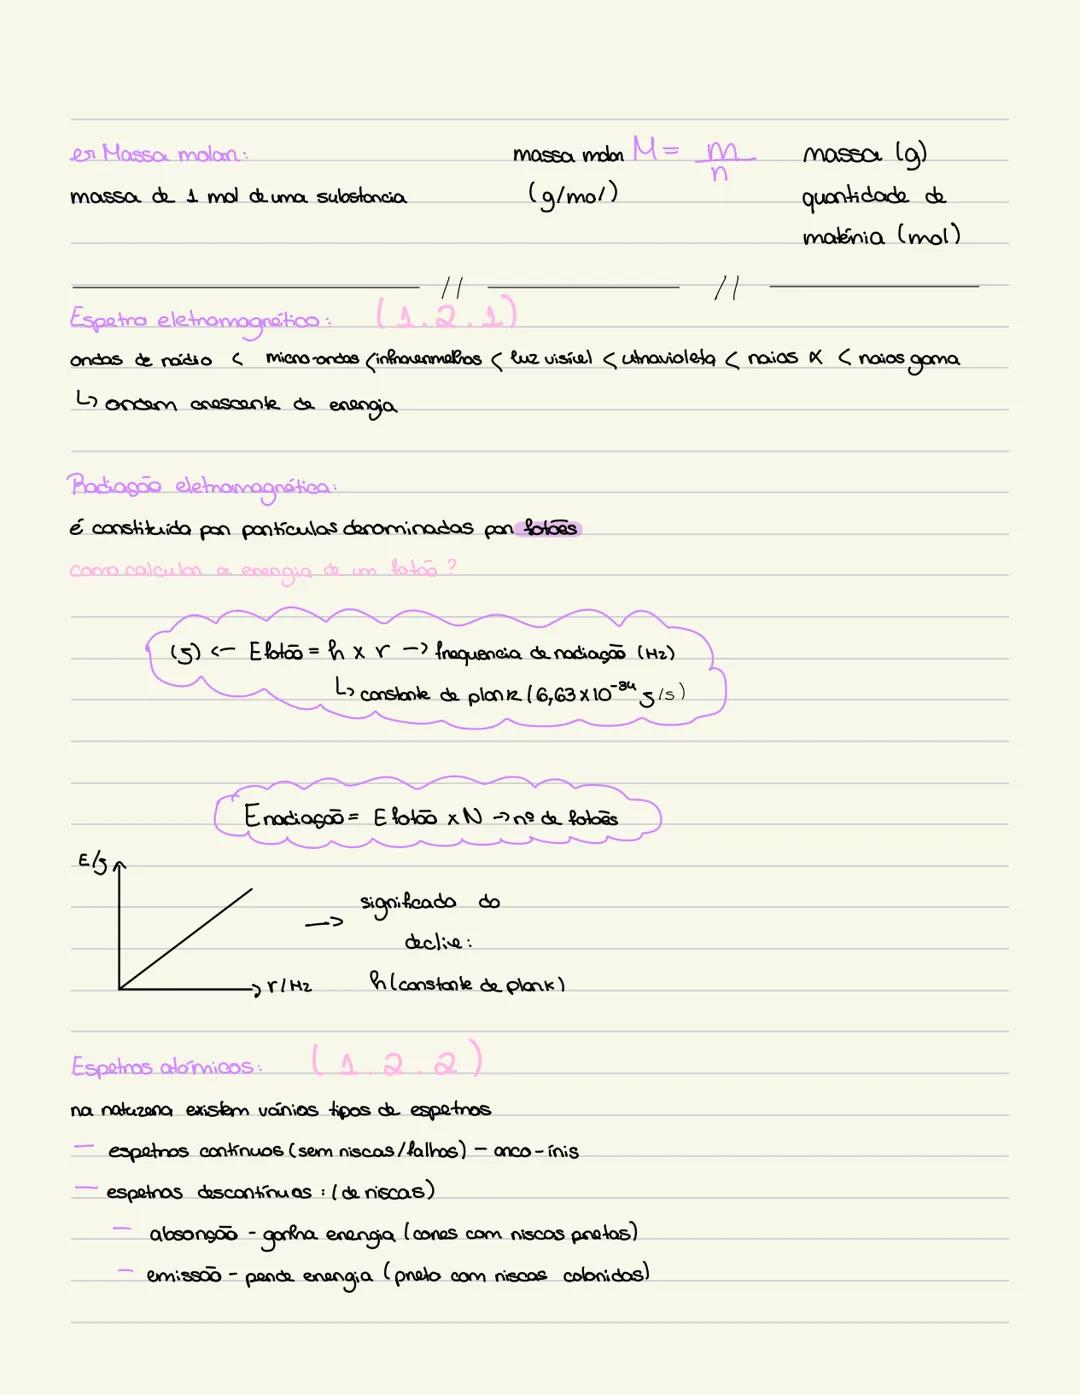 er Massa molar:
massa de 1 mol de uma substancia
massa molar M = m/n
(g/mol)
massa (g)
quantidade de
matéria (mol)
// //
Espetro eletromagnético: (1.2.1)
ondas de rádio < micro-ondas < infravermelhos < luz visível < ultravioleta < raios X < raios gama
↳ ordem crescente de energia
Radiação eletromagnética:
é constituida por partículas denominadas por fotões
como calcular a energia de um fotão?
(J) <- Efotão = h x r -> frequencia de radiação (Hz)
↳ constante de plank (6,63 x 10^-34 J/s)
Eradiação = Efotão x N -> nº de fotões
E/J
-> significado do
declive:
r/Hz
h (constante de plank)
Espetros atómicos: (1.2.2)
na naturera existem vários tipos de espetros
— espetros contínuos (sem riscas/falhas) - arco-íris
— espetros descontínuos: (de riscas)
— absorção - ganha energia (cores com riscas pretas)
— emissão - perde energia (preto com riscas coloridas)